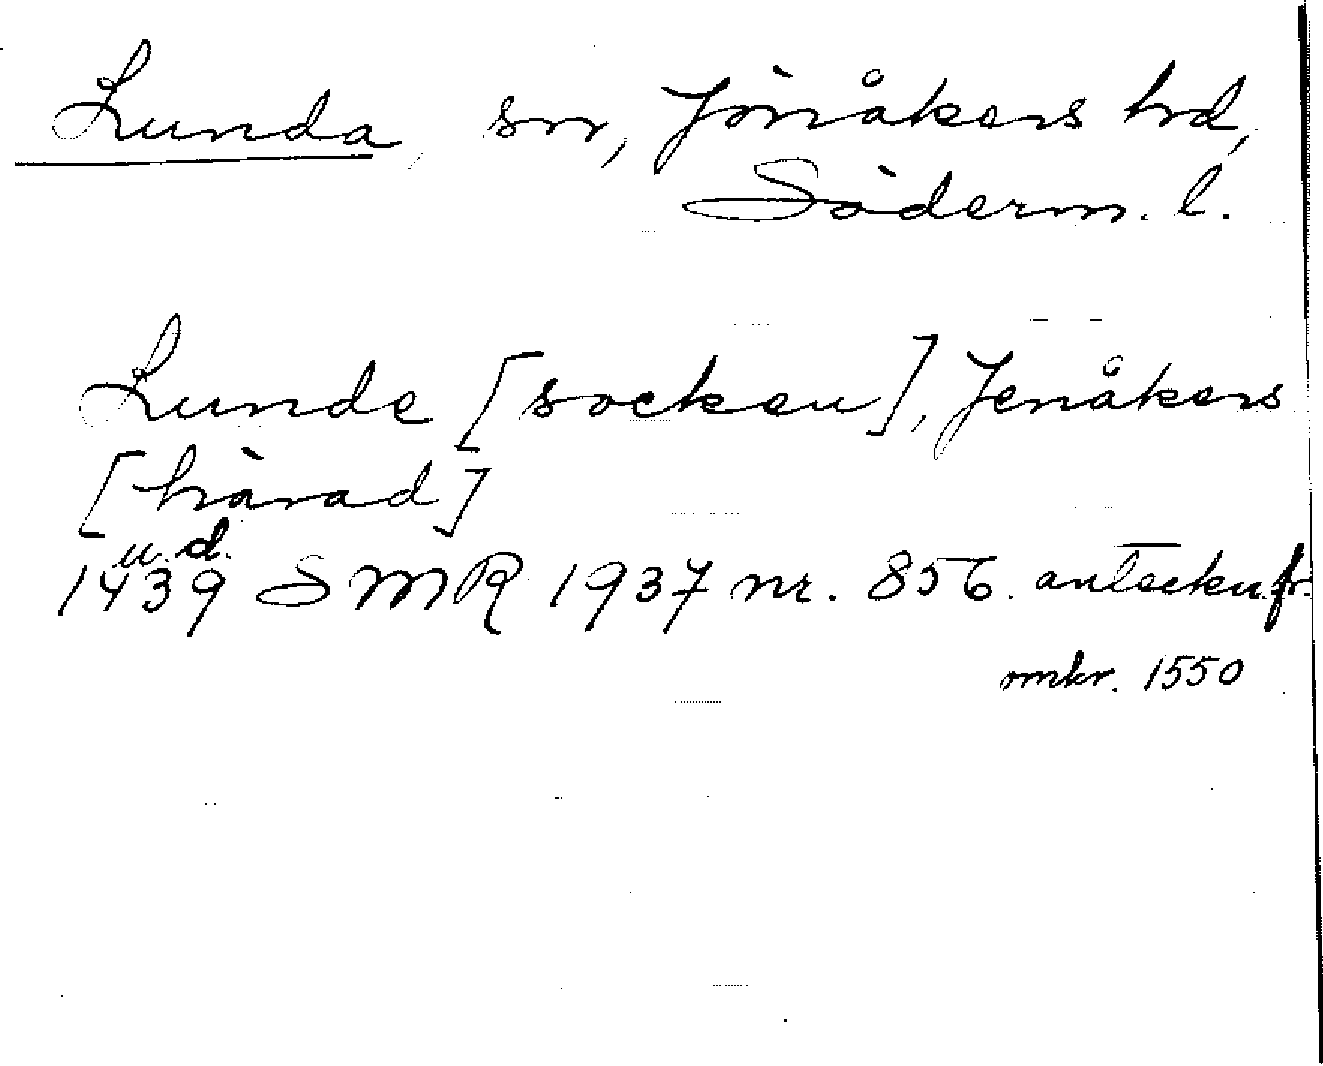 Lunda, sn, Jönåkers hd,
Söderm. l.
Lunde [socken], Jenåkers
[härad]
u.d.
1439 SMR 1937 nr. 856. anteckn. fr.
omkr. 1550